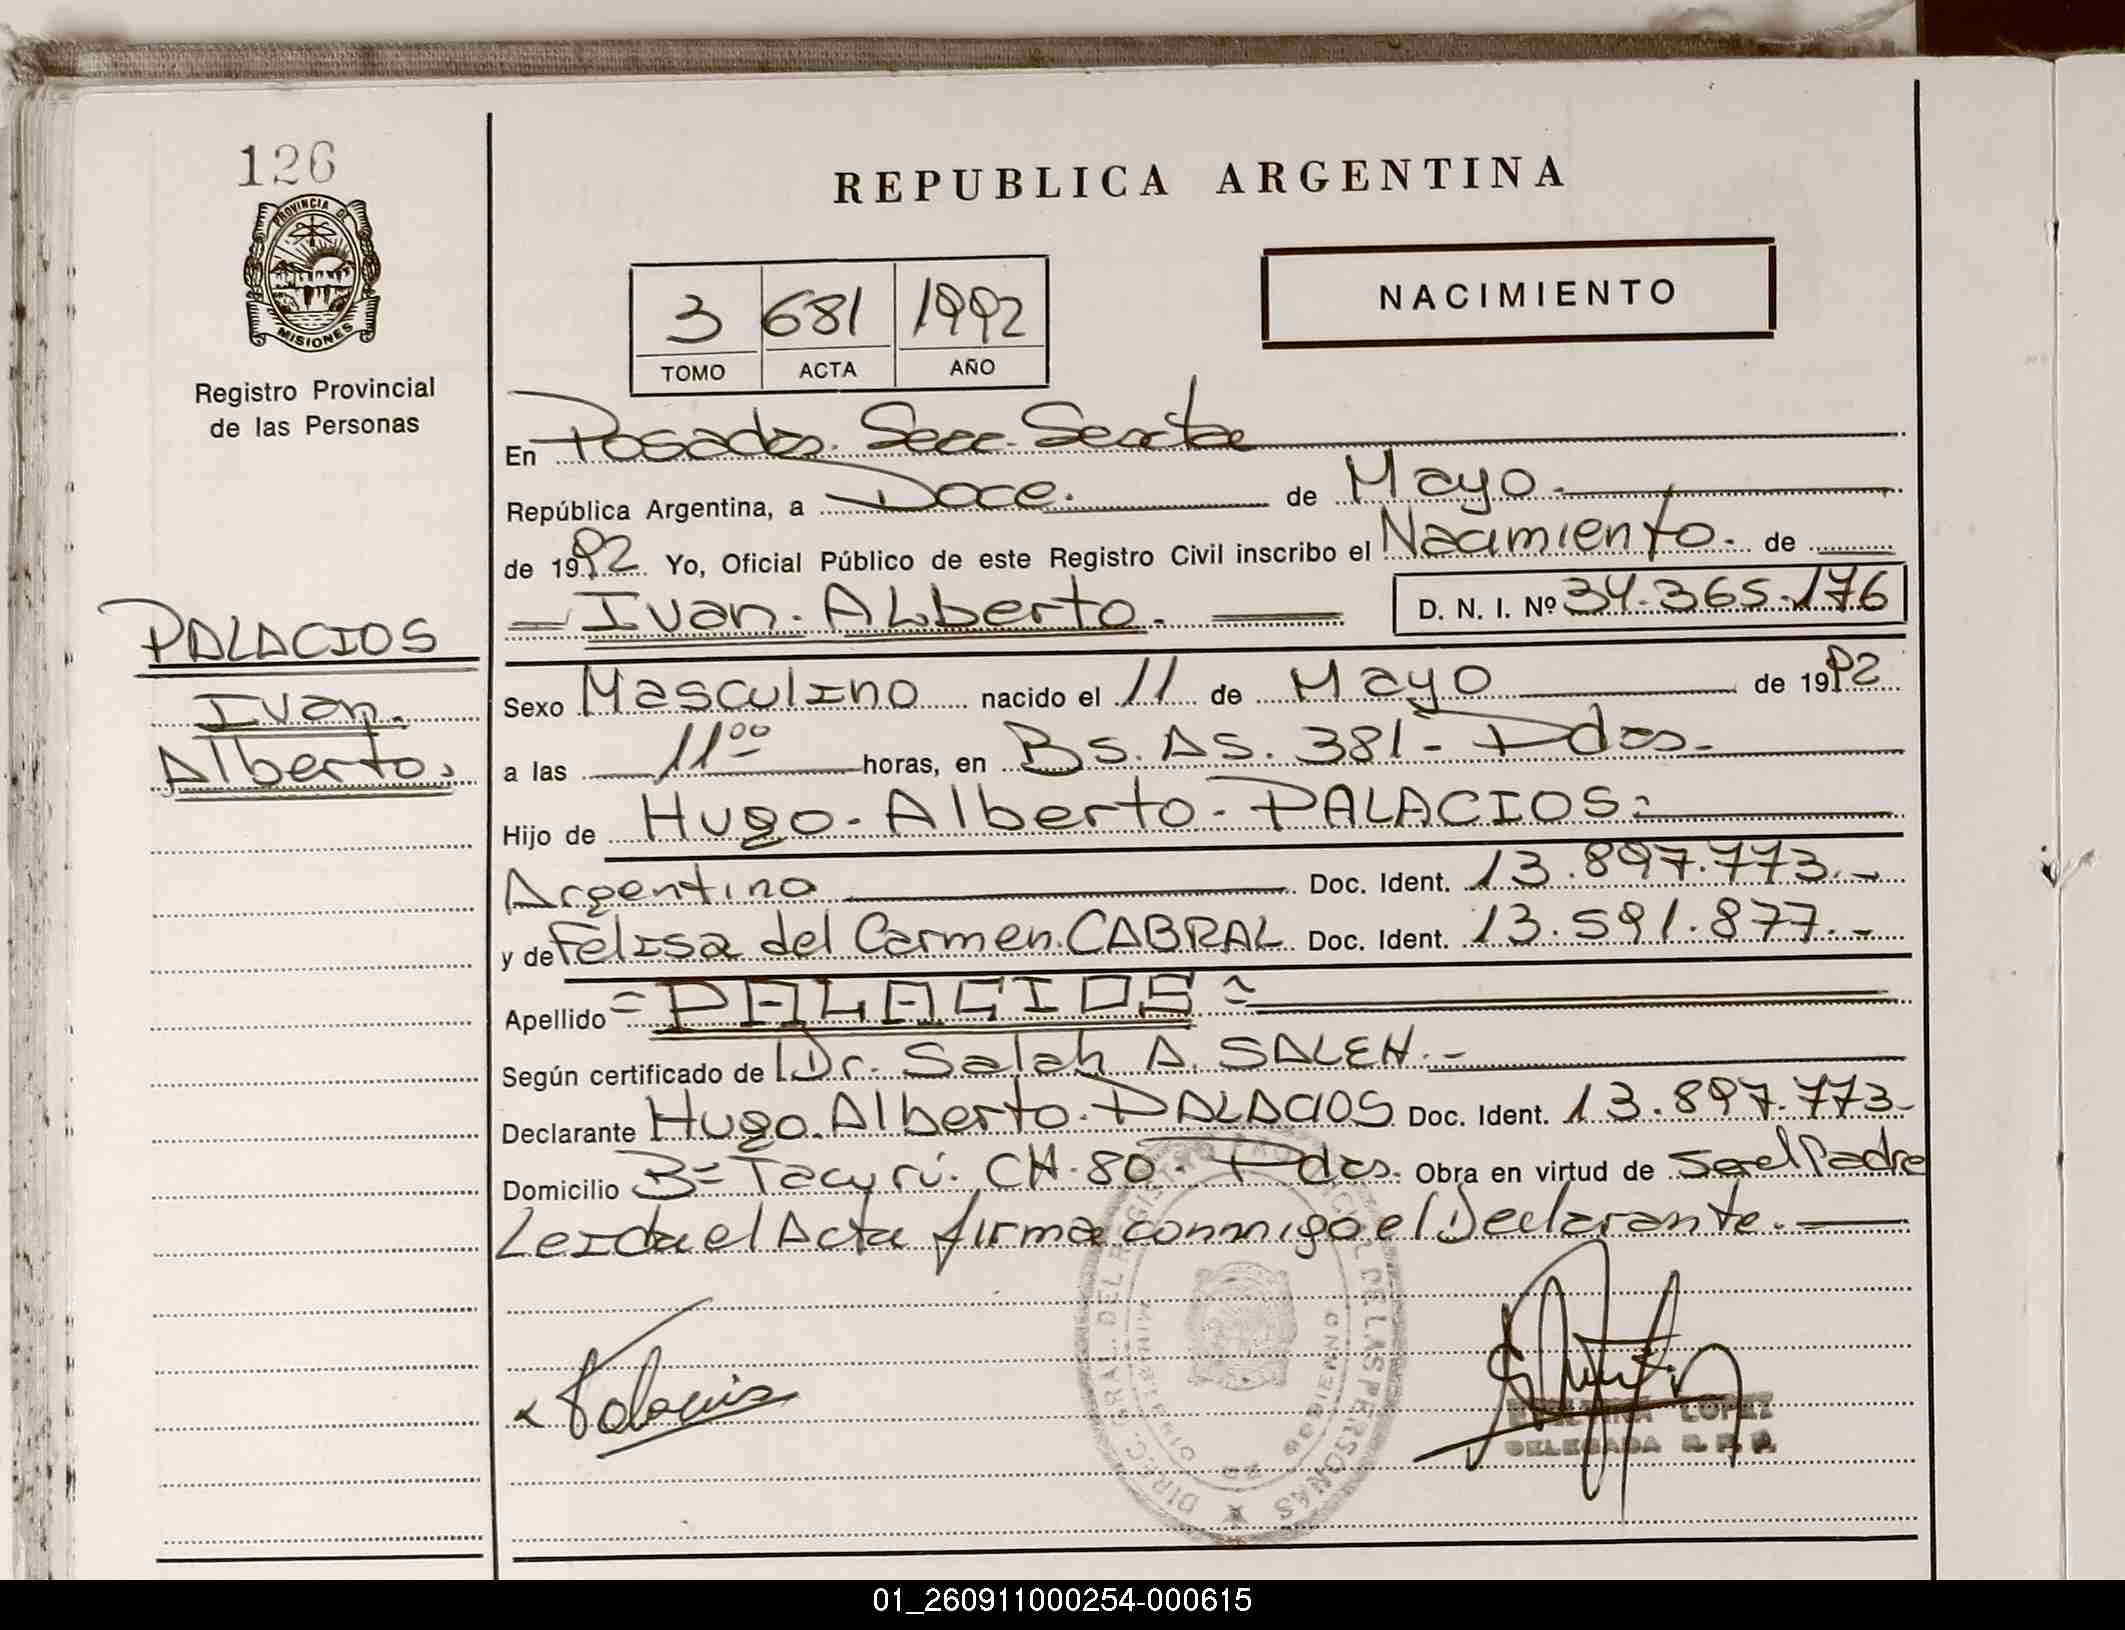 126
PROVINCIA DE
MISIONES
Registro Provincial
de las Personas
PALACIOS
Ivan.
Alberto.
REPUBLICA ARGENTINA
3 681 1992
TOMO ACTA AÑO
NACIMIENTO
En Posadas. Secc. Sexta
República Argentina, a Doce. de Mayo.
de 1992 Yo, Oficial Público de este Registro Civil inscribo el Nacimiento. de
Ivan. Alberto. D. N. I. Nº 34.365.176
Sexo Masculino nacido el 11 de Mayo de 1992
a las 11 00 horas, en Bs. As. 381 - Pdas.
Hijo de Hugo. Alberto. PALACIOS
Argentino Doc. Ident. 13.897.773.-
y de Felisa del Carmen. CABRAL Doc. Ident. 13.591.877.-
Apellido = PALACIOS =
Según certificado de Dr. Salah A. SALEH.-
Declarante Hugo. Alberto. PALACIOS Doc. Ident. 13.897.773-
Domicilio Bº Tacurú. CH. 80. Pdas. Obra en virtud de Ser el Padre
Leida el Acta firma conmigo el Declarante.
Palacios
DIREC. GRAL. DEL REGISTRO PROVINCIAL DE LAS PERSONAS
LOPEZ
DELEGADA R. P. P.
01_260911000254-000615